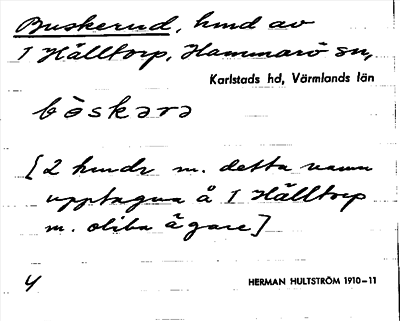 Buskerud, hmd av
1 Hälltorp, Hammarö sn,
Karlstads hd, Värmlands län
bòskərə
[2 hmdr m. detta namn
upptagna å 1 Hälltorp
m. olika ägare]
4
HERMAN HULTSTRÖM 1910–11